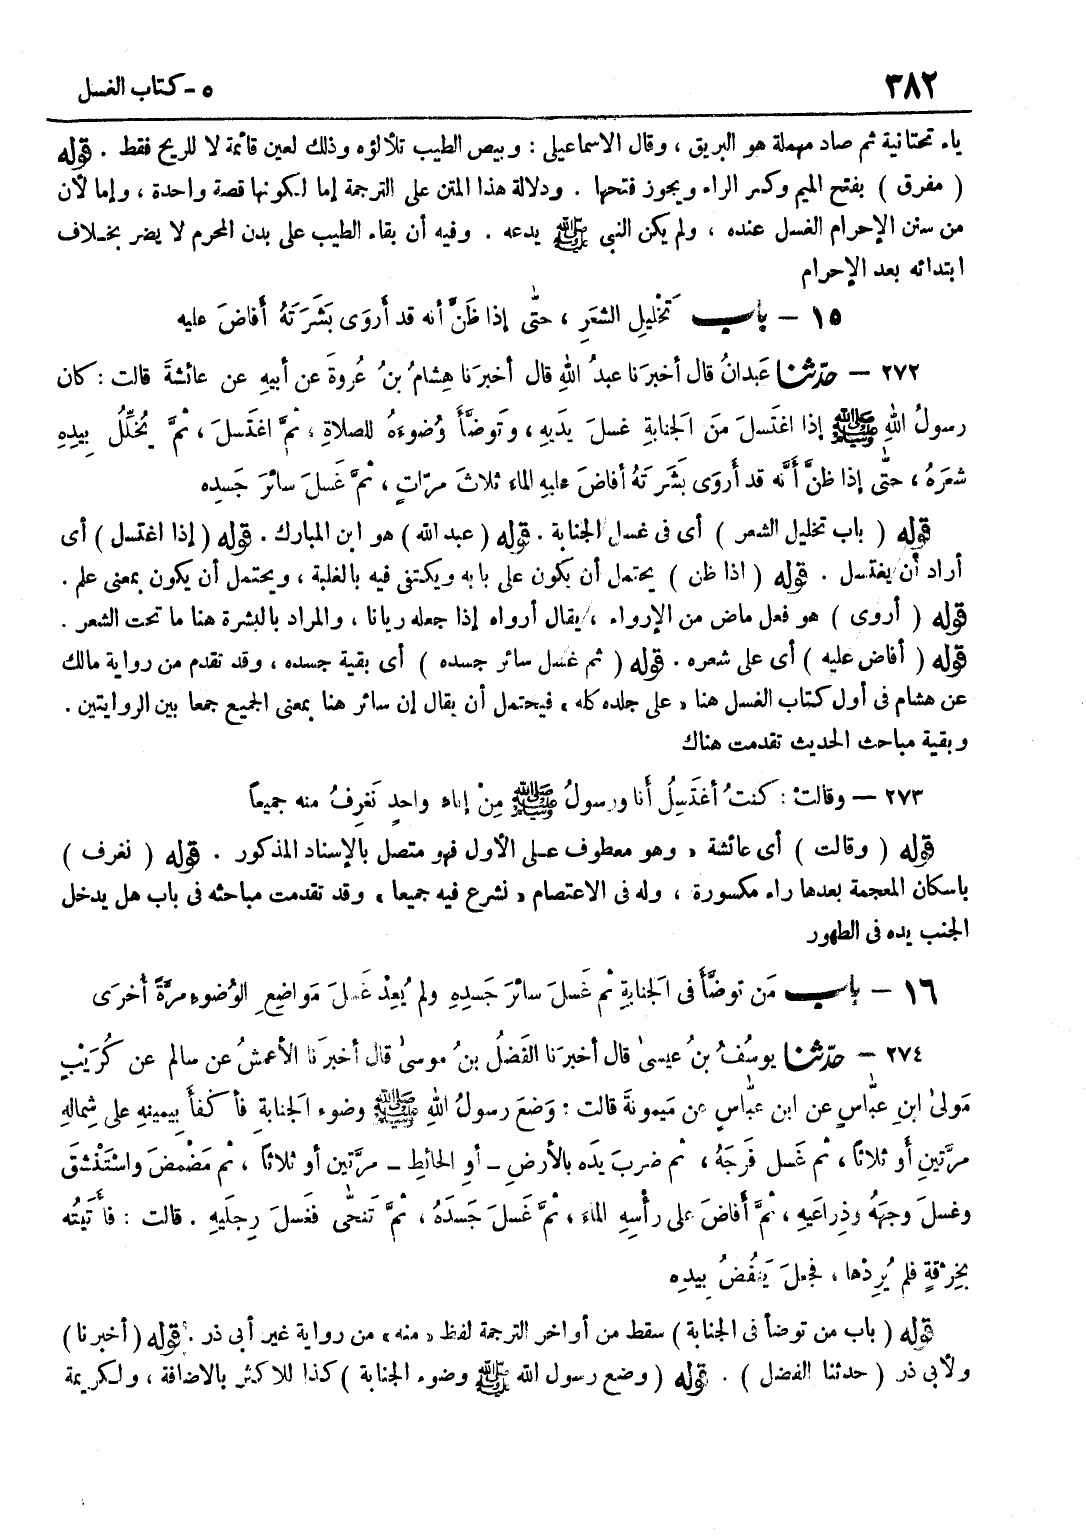 ٣٨٢
٥ - كتاب الغسل
ياء تحتانية ثم صاد مهملة هو البريق ، وقال الاسماعيلى : وبيص الطيب تلألؤه وذلك لعين قائمة لا للريح فقط . قوله
( مفرق ) بفتح الميم وكسر الراء ويجوز فتحها . ودلالة هذا المتن على الترجمة إما لكونها قصة واحدة ، وإما لأن
من سنن الإحرام الغسل عنده ، ولم يكن النبى ﷺ يدعه . وفيه أن بقاء الطيب على بدن المحرم لا يضر بخلاف
ابتدائه بعد الإحرام
١٥ - باب تَخْليلِ الشعَرِ ، حتّى إذا ظَنَّ أنه قد أَروَى بَشَرَتَهُ أَفاضَ عليه
٢٧٢ - حدّثنا عَبدانُ قال أخبرَنا عبدُ اللهِ قال أخبرَنا هِشامُ بنُ عُروةَ عن أبيهِ عن عائشةَ قالت : كان
رسولُ اللهِ ﷺ إذا اغتَسلَ منَ الجَنابةِ غسلَ يدَيهِ ، وتَوضَّأَ وُضوءَهُ للصلاةِ ، ثمَّ اغتَسلَ ، ثمَّ يُخلِّلُ بيدِهِ
شعَرَهُ ، حتّى إذا ظنَّ أَنَّه قد أَروَى بَشَرتَهُ أفاضَ عليهِ الماءَ ثلاثَ مرّاتٍ ، ثمَّ غَسلَ سائرَ جَسدِه
قوله ( باب تخليل الشعر ) أى فى غسل الجنابة . قوله ( عبد الله ) هو ابن المبارك . قوله ( إذا اغتسل ) أى
أراد أن يغتسل . قوله ( اذا ظن ) يحتمل أن يكون على بابه ويكتنى فيه بالغلبة ، ويحتمل أن يكون بمعنى علم .
قوله ( أروى ) هو فعل ماض من الإرواء ، يقال أرواه إذا جعله ريانا ، والمراد بالبشرة هنا ما تحت الشعر .
قوله ( أفاض عليه ) أى على شعره . قوله ( ثم غسل سائر جسده ) أى بقية جسده ، وقد تقدم من رواية مالك
عن هشام فى أول كتاب الغسل هنا « على جلده كله » فيحتمل أن يقال إن سائر هنا بمعنى الجميع جمعا بين الروايتين .
وبقية مباحث الحديث تقدمت هناك
٢٧٣ - وقالتْ : كنتُ أغتَسِلُ أَنا ورسولُ ﷺ مِنْ إناءٍ واحدٍ نَغرِفُ منه جميعاً
قوله ( وقالت ) أى عائشة ، وهو معطوف على الأول فهو متصل بالإسناد المذكور . قوله ( نغرف )
باسكان المعجمة بعدها راء مكسورة ، وله فى الاعتصام « نشرع فيه جميعا » وقد تقدمت مباحثه فى باب هل يدخل
الجنب يده فى الطهور
١٦ - باب مَن توضَّأَ فى الجَنابةِ ثم غَسلَ سائرَ جَسدِهِ ولم يُعِدْ غَسلَ مَواضِعِ الوُضوءِ مرَّةً أُخرَى
٢٧٤ - حدّثنا يوسُفُ بنُ عيسىٰ قال أخبرَنا الفَضلُ بنُ موسىٰ قال أخبرَنا الأعمشُ عن سالم عن كُرَيْبٍ
مَولىٰ ابنِ عبّاسٍ عن ابن عبّاسٍ عن مَيمونةَ قالت : وَضعَ رسولُ اللهِ ﷺ وضوءَ الجَنابةِ فأَكفأَ بيمينهِ على شِمالهِ
مرَّتينِ أَو ثلاثاً ، ثم غَسل فَرجَهُ ، ثم ضربَ يدَه بالأرضِ - أوِ الحائطِ - مرَّتين أو ثلاثاً ، ثم مَضْمضَ واستَنْشقَ
وغسلَ وجههُ وذِراعَيهِ ، ثمَّ أَفاضَ على رأْسهِ الماءَ ، ثمَّ غَسلَ جَسدَهُ ، ثمَّ تَنحّى فغَسلَ رِجلَيهِ . قالت : فأَتَيتُه
بخِرْقةٍ فلم يُرِدْها ، فجعلَ يَنفُضُ بيدِه
قوله ( باب من توضأ فى الجنابة ) سقط من أواخر الترجمة لفظ « منه » من رواية غير أبى ذر . قوله ( أخبرنا )
ولأبى ذر ( حدثنا الفضل ) . قوله ( وضع رسول الله ﷺ وضوء الجنابة ) كذا للاكثر بالاضافة ، ولكريمة